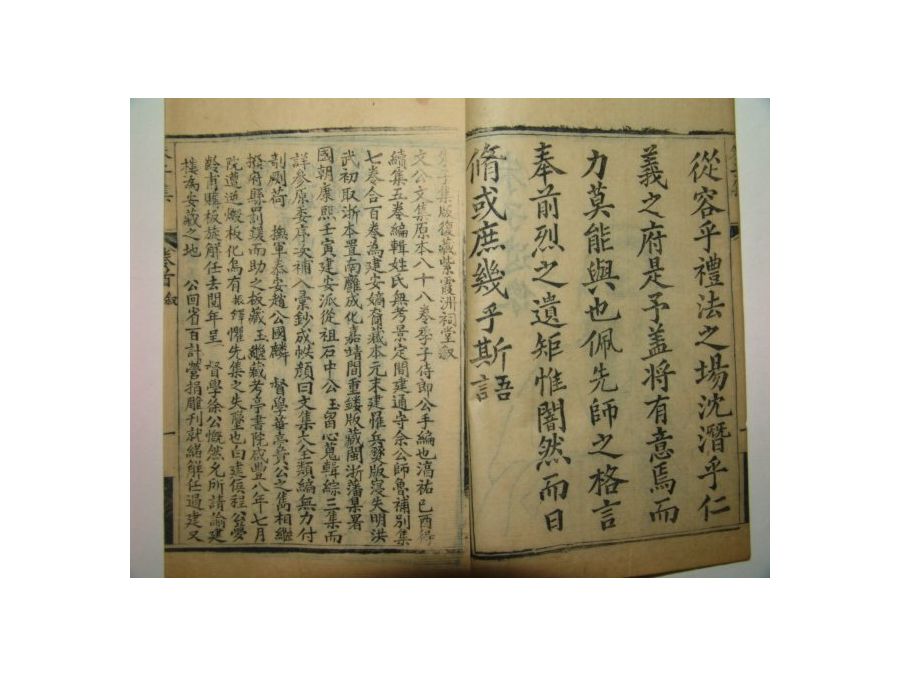 從容乎禮法之場沈潛乎仁
義之府是予盖将有意焉而
力莫能與也佩先師之格言
奉前烈之遺矩惟闇然而日
脩或庶幾乎斯語
朱子集版復藏紫霞洲祠堂敘
文公文集原本八十八卷季子侍郎公手編也淳祐己酉得
續集五卷編輯姓氏無考景定間建通守余公師魯補別集
七卷合百卷為建安嫡裔藏本元末建罹兵燹版寖失明洪
武初取浙本置南雝成化嘉靖間重鋟版藏閩浙藩臬署
國朝康熙壬寅建安派從祖石中公玉留心蒐輯綜三集而
詳參原委序次補入彙鈔成帙顏曰文集大全類編無力付
剞劂荷 撫軍泰安趙公國麟 督學華亭黃公之雋相繼
撥府縣罰鍰而助之板藏玉繼藏考亭書院咸豐八年七月
院遭逆燬板化烏有振鐸懼先集之失墜也白建侯程公榮
齡甫賺板族解任去閱年呈 督學徐公慨然允所請諭建
樓為安藏之地 公回省百計營捐雕刊就緒解任過建又
卷首 敘